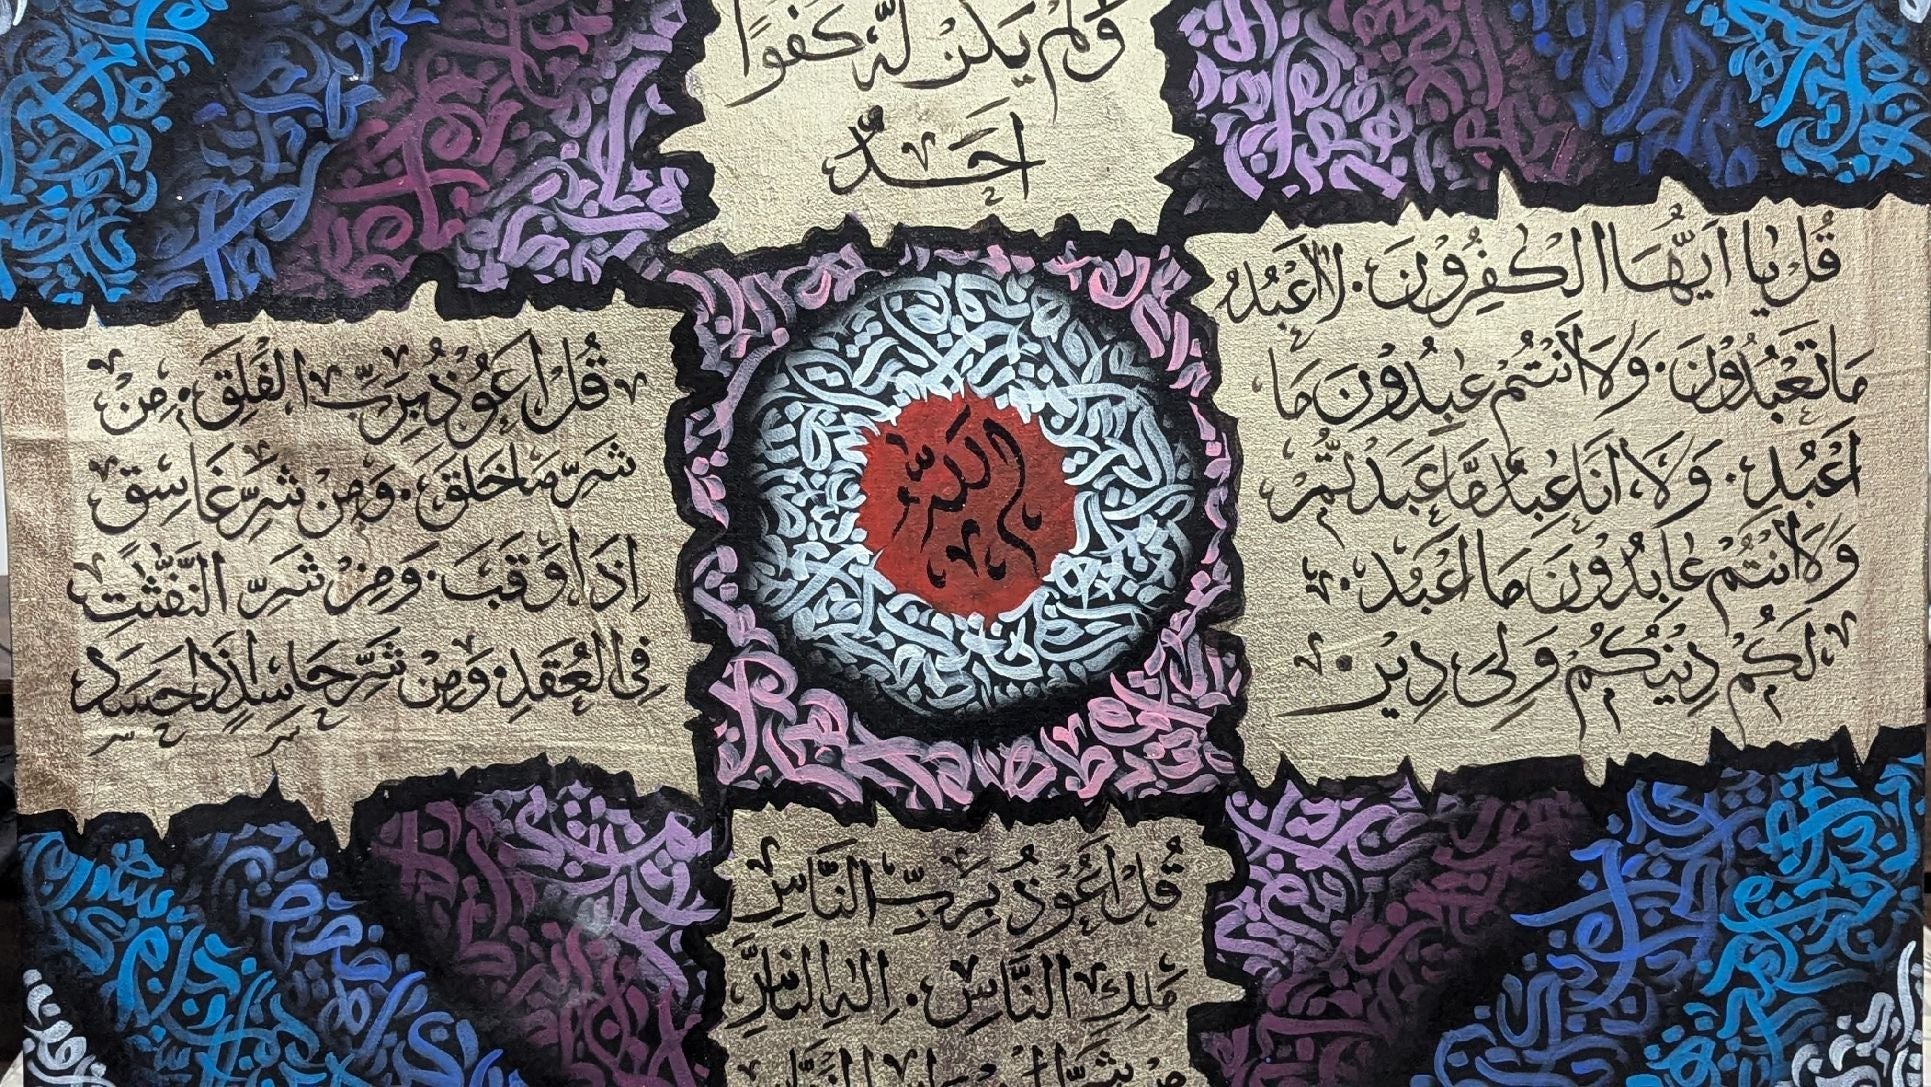 وَلَمْ يَكُنْ لَّهٗ كُفُوًا
اَحَدٌ
قُلْ يٰا اَيُّهَا الْكٰفِرُوْنَ. لَا اَعْبُدُ
مَا تَعْبُدُوْنَ. وَلَا اَنْتُمْ عٰبِدُوْنَ مَا
اَعْبُدُ. وَلَا اَنَا عٰبِدٌ مَّا عَبَدْتُّمْ
وَلَا اَنْتُمْ عَابِدُوْنَ مَا اَعْبُدُ.
لَكُمْ دِيْنُكُمْ وَلِىَ دِيْنِ
اللّٰهُ
قُلْ اَعُوْذُ بِرَبِّ الْفَلَقِ. مِنْ
شَرِّ مَا خَلَقَ. وَمِنْ شَرِّ غَاسِقٍ
اِذَا وَقَبَ. وَمِنْ شَرِّ النَّفّٰثٰتِ
فِى الْعُقَدِ. وَمِنْ شَرِّ حَاسِدٍ اِذَا حَسَدَ
قُلْ اَعُوْذُ بِرَبِّ النَّاسِ
مَلِكِ النَّاسِ. اِلٰهِ النَّاسِ